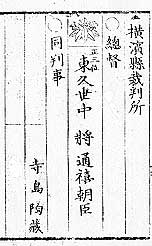 横濱縣裁判所
○總督
正三位
東久世中將通禧朝臣
○同判事
寺島陶藏